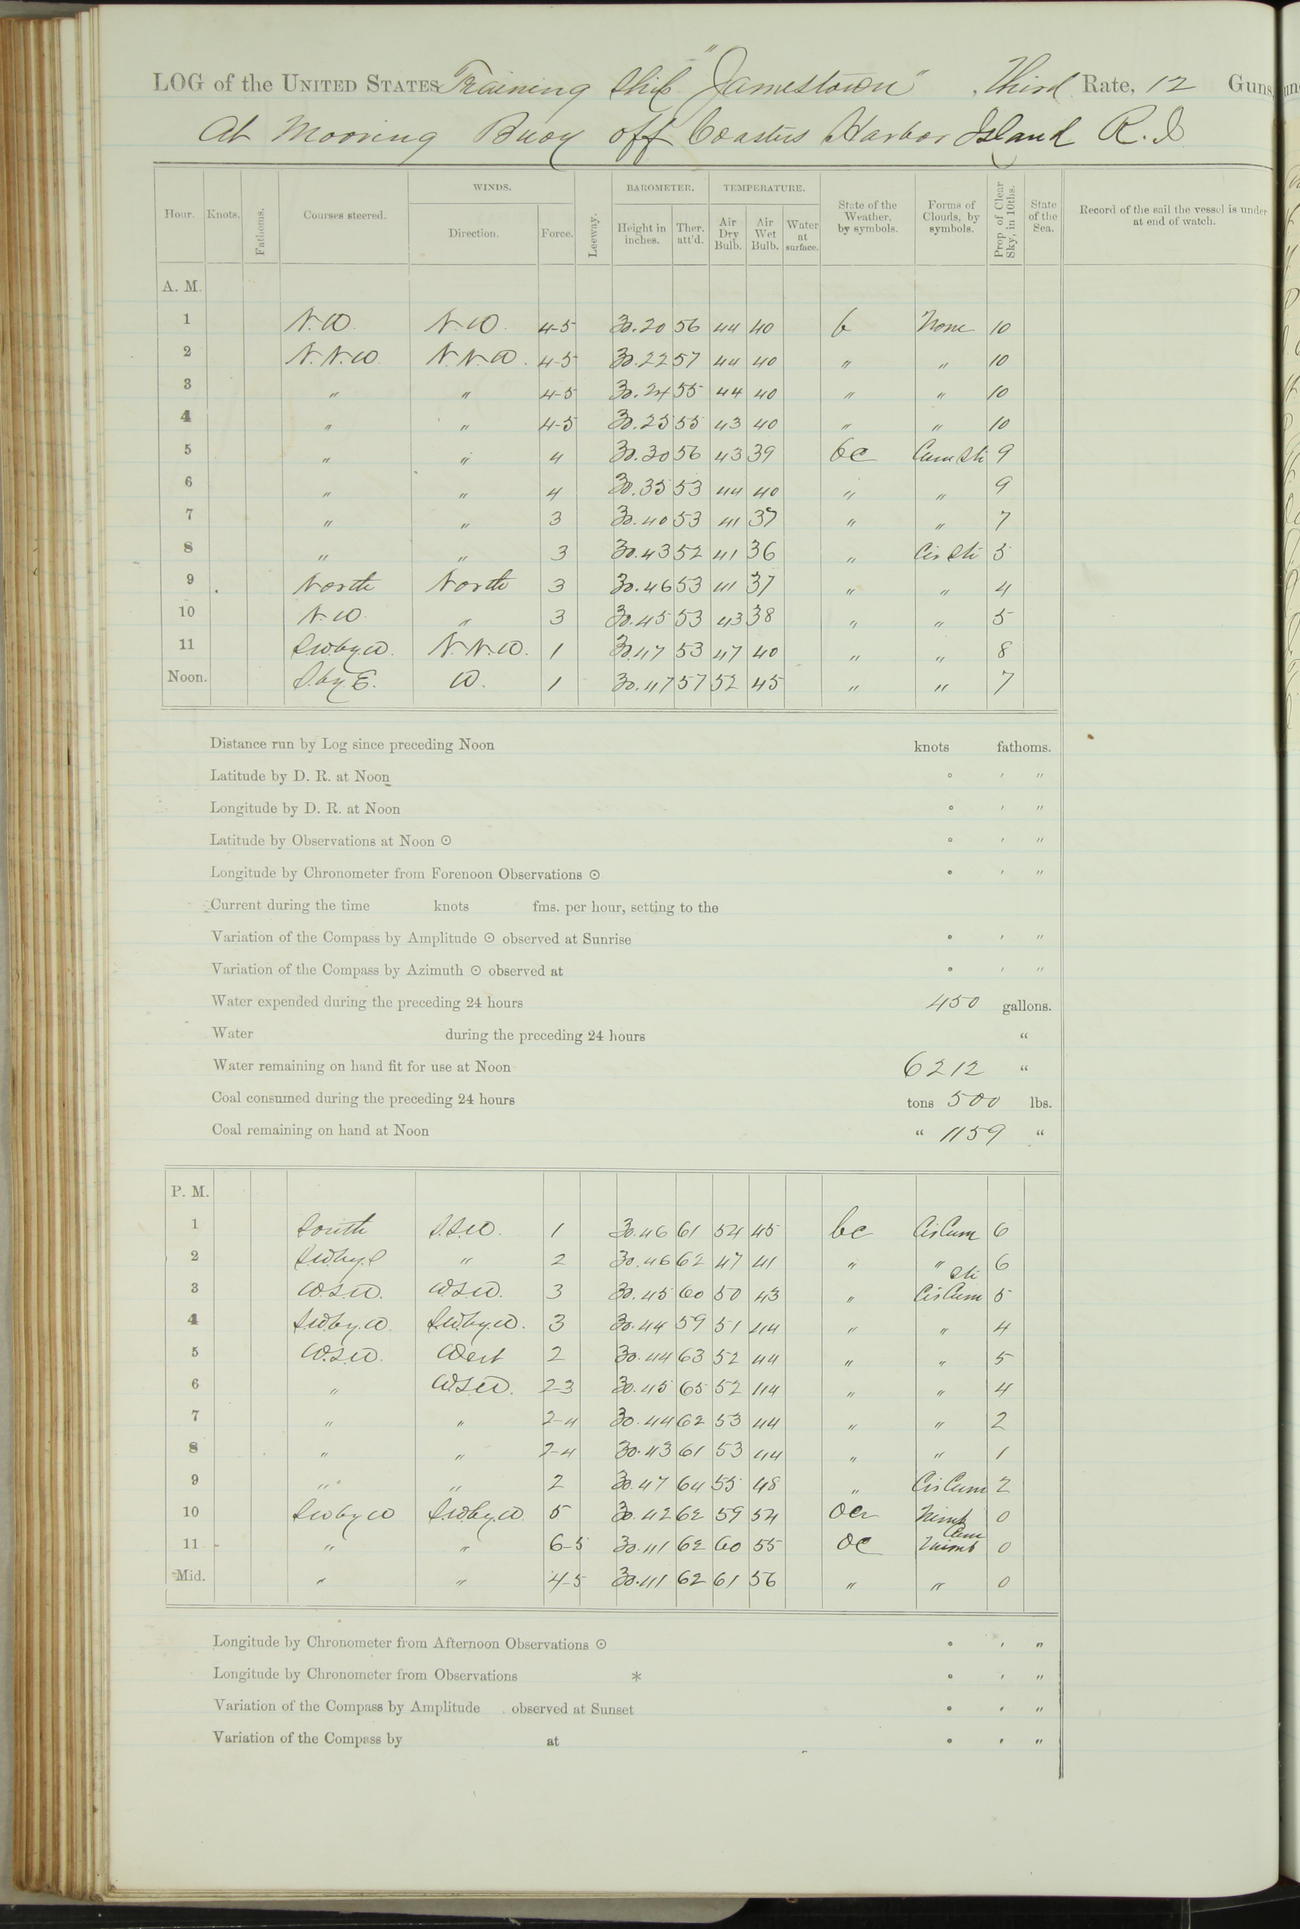 LOG of the UNITED STATES Training Ship "Jamestown", Third Rate, 12 Guns,
At Mooring Buoy off Coasters Harbor Island R.I.
WINDS. BAROMETER. TEMPERATURE.
Hour. Knots. Fathoms. Courses steered. Direction. Force. Leeway. Height in inches. Ther. att'd. Air Dry Bulb. Air Wet Bulb. Water at surface. State of the Weather, by symbols. Forms of Clouds, by symbols. Prop. of Clear Sky, in 10ths. State of the Sea. Record of the sail the vessel is under at end of watch.
A. M.
1 N.W. N.W. 4-5 30.20 56 44 40 b None 10
2 N.N.W. N.N.W. 4-5 30.22 57 44 40 " " 10
3 " " 4-5 30.24 55 44 40 " " 10
4 " " 4-5 30.25 55 43 40 " " 10
5 " " 4 30.30 56 43 39 bc Cum Str 9
6 " " 4 30.35 53 44 40 " " 9
7 " " 3 30.40 53 41 37 " " 7
8 " " 3 30.43 52 41 36 " Cir Str 5
9 North North 3 30.46 53 41 37 " " 4
10 N.W. " 3 30.45 53 43 38 " " 5
11 S.W.by.W. N.N.W. 1 30.47 53 47 40 " " 8
Noon. S.by.E. W. 1 30.47 57 52 45 " " 7
Distance run by Log since preceding Noon knots fathoms.
Latitude by D. R. at Noon ° ′ ″
Longitude by D. R. at Noon ° ′ ″
Latitude by Observations at Noon ⊙ ° ′ ″
Longitude by Chronometer from Forenoon Observations ⊙ ° ′ ″
Current during the time knots fms. per hour, setting to the
Variation of the Compass by Amplitude ⊙ observed at Sunrise ° ′ ″
Variation of the Compass by Azimuth ⊙ observed at ° ′ ″
Water expended during the preceding 24 hours 450 gallons.
Water during the preceding 24 hours "
Water remaining on hand fit for use at Noon 6212 "
Coal consumed during the preceding 24 hours tons 500 lbs.
Coal remaining on hand at Noon " 1159 "
P. M.
1 South S.S.W. 1 30.46 61 54 45 bc Cir Cum 6
2 S.W.by.S " 2 30.46 62 47 41 " " 6
3 W.S.W. W.S.W. 3 30.45 60 50 43 " Cir Cum Str 5
4 S.W.by.W. S.W.by.W. 3 30.44 59 51 44 " " 4
5 W.S.W. West 2 30.44 63 52 44 " " 5
6 " W.S.W. 2-3 30.45 65 52 44 " " 4
7 " " 2-4 30.44 62 53 44 " " 2
8 " " 2-4 30.43 61 53 44 " " 1
9 " " 2 30.47 64 55 48 " Cir Cum 2
10 S.W.by W S.W.by.W. 5 30.42 62 59 54 ocr Nimb 0
11 " " 6-5 30.41 62 60 55 oc Cum Nimb 0
Mid. " " 4-5 30.41 62 61 56 " " 0
Longitude by Chronometer from Afternoon Observations ⊙ ° ′ ″
Longitude by Chronometer from Observations * ° ′ ″
Variation of the Compass by Amplitude observed at Sunset ° ′ ″
Variation of the Compass by at ° ′ ″